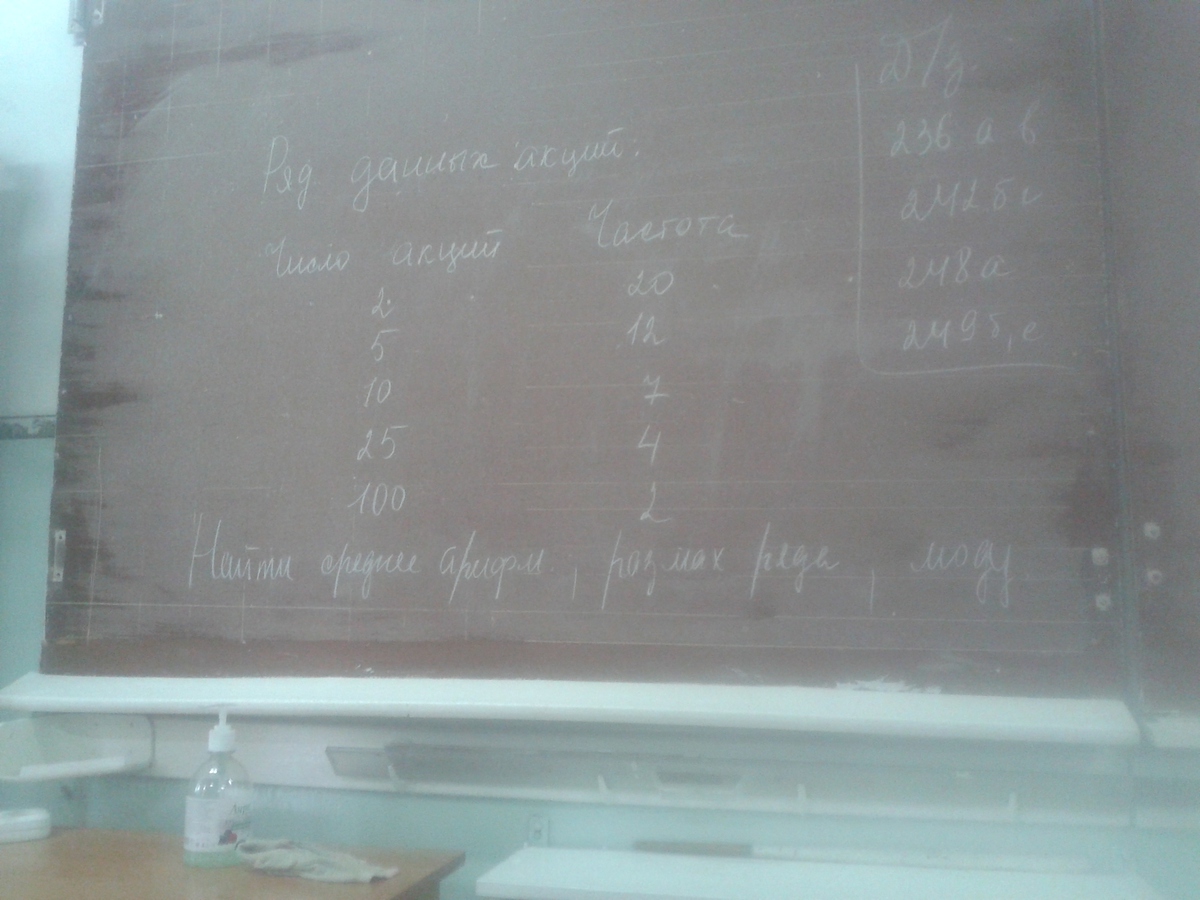 Ряд данных акций:
Число акций Частота
2 20
5 12
10 7
25 4
100 2
Найти среднее арифм., размах ряда, моду
Д/з
236 а в
242 б
248 а
249 б, е